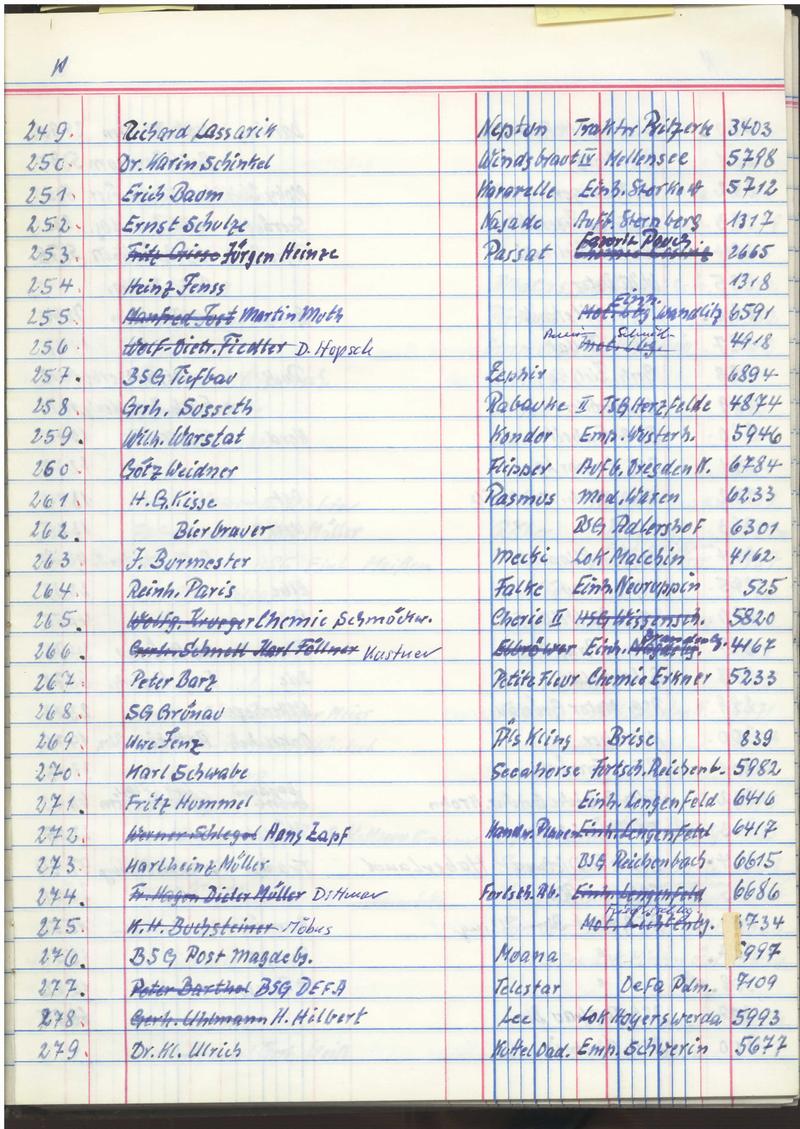 249. Richard Lassarik Neptun Traktor Pritzerbe 3403
250. Dr. Karin Schinkel Windsbraut IV Hellensee 5798
251. Erich Baum Kararelle Einh. Storkow 5712
252. Ernst Schulze Najade Aufb. Sternberg 1317
253. Fritz Jürgen Heinze Passat Pouch 2665
254. Heinz Fenss 1318
255. Manfred Tost Martin Muth Einh. Wandlitz 6591
256. Wolf-Dietr. Fiedler D. Hopsch 4918
257. BSG Tiefbau Zephir 6894
258. Gerh. Sosseth Rabauke II TSG Herzfelde 4874
259. Wilh. Warstat Kondor Emp. Wusterh. 5946
260. Götz Weidner Flipper Aufb. Dresden N. 6784
261. H. G. Kisse Rasmus Med. Waren 6233
262. Bierbrauer BSG Adlershof 6301
263. J. Burmester Mecki Lok Malchin 4162
264. Reinh. Paris Falke Einh. Neuruppin 525
265. Wolfg. Krueger Chemie Schmöckw. Cherie II HSG Wissensch. 5820
266. Gerh. Schnett Karl Föllner Kustner Einh. Brandenbg. 4167
267. Peter Barz Petite Fleur Chemie Erkner 5233
268. SG Grünau
269. Uwe Fenz Äls Kling Brise 839
270. Karl Schwabe Seeahorse Fortsch. Reichenb. 5982
271. Fritz Hummel Einh. Lengenfeld 6416
272. Werner Schlegel Hans Zapf Handw. Plauen Einh. Lengenfeld 6417
273. Karlheinz Müller BSG Reichenbach 6615
274. Fr. Hagen Dieter Müller Dittmar Fortsch. Rb. Einh. Lengenfeld 6686
275. K. H. Buchsteiner Möbus Mot. Lichtenbg. 734
276. BSG Post Magdebg. Moana 997
277. Peter Barthol BSG DEFA Telestar Defa Pdm. 7109
278. Gerh. Uhlmann H. Hilbert Lee Lok Hoyerswerda 5993
279. Dr. Kl. Ulrich Kuttel Dad. Emp. Schwerin 5677